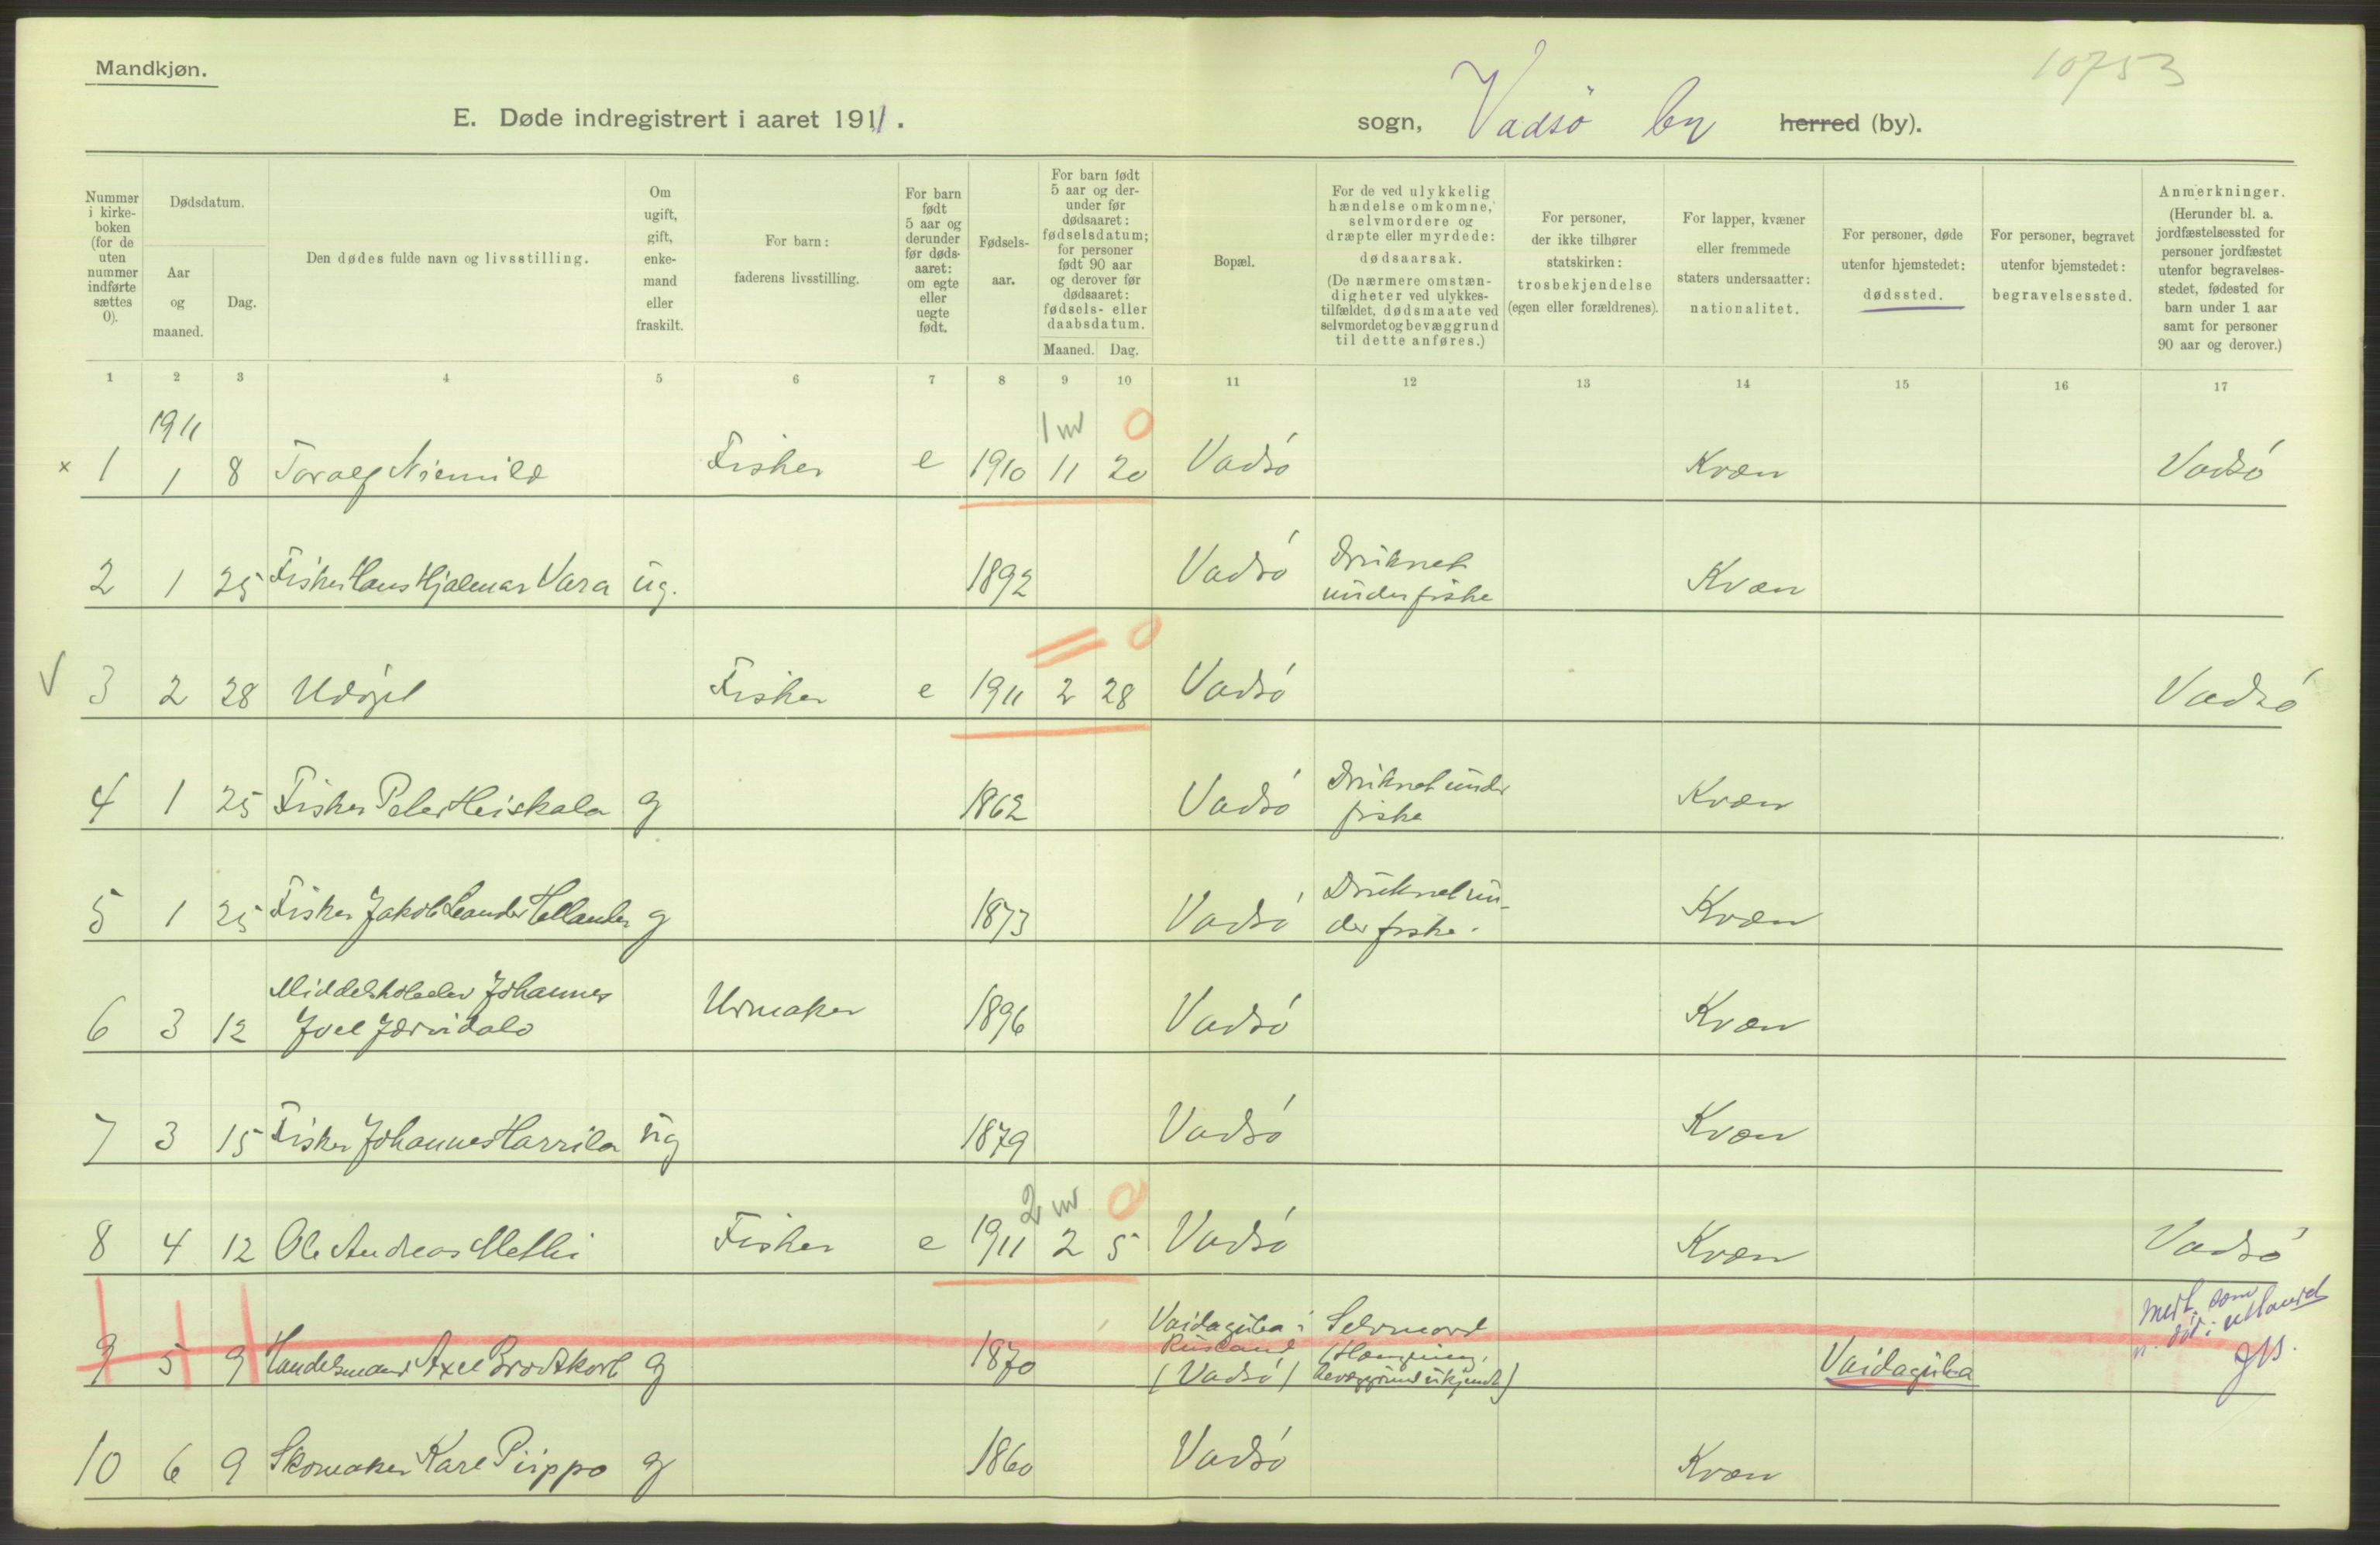 Mandkjøn.
10753
E. Døde indregistrert i aaret 1911.
sogn, Vadsö by herred (by).
Nummer i kirkeboken (for de uten nummer indførte sættes 0).
Dødsdatum.
Aar og maaned.
Dag.
Den dødes fulde navn og livsstilling.
Om ugift, gift, enkemand eller fraskilt.
For barn: faderens livsstilling.
For barn født 5 aar og derunder før dødsaaret: om egte eller uegte født.
Fødselsaar.
For barn født 5 aar og derunder før dødsaaret: fødselsdatum; for personer født 90 aar og derover før dødsaaret: fødsels- eller daabsdatum.
Maaned. Dag.
Bopæl.
For de ved ulykkelig hændelse omkomne, selvmordere og dræpte eller myrdede: dødsaarsak.
(De nærmere omstændigheter ved ulykkestilfældet, dødsmaate ved selvmordet og bevæggrund til dette anføres.)
For personer, der ikke tilhører statskirken: trosbekjendelse (egen eller forældrenes).
For lapper, kvæner eller fremmede staters undersaatter: nationalitet.
For personer, døde utenfor hjemstedet: dødssted.
For personer, begravet utenfor hjemstedet: begravelsessted.
Anmerkninger.
(Herunder bl. a. jordfæstelsessted for personer jordfæstet utenfor begravelsesstedet, fødested for barn under 1 aar samt for personer 90 aar og derover.)
1 2 3 4 5 6 7 8 9 10 11 12 13 14 15 16 17
1911 1 m 0
x 1 1 8 Toralf Niemilæ Fisker e 1910 11 20 Vadsö Kvæn Vadsö
2 1 25 Fisker Hans Hjalmar Vara ug. 1892 Vadsö Druknet under fiske Kvæn
0
V 3 2 28 Udöpt Fisker e 1911 2 28 Vadsö Vadsö
4 1 25 Fisker Peter Heiskala g 1862 Vadsö Druknet under fiske Kvæn
5 1 25 Fisker Jakob Leander Hellander g 1873 Vadsö Druknet under fiske. Kvæn
6 3 12 Middelskoleelev Johannes Joel Järvidalo Urmaker 1896 Vadsö Kvæn
7 3 15 Fisker Johannes Harrila ug 1879 Vadsö Kvæn
2 m 0
8 4 12 Ole Andreas Methi Fisker e 1911 2 5 Vadsö Kvæn Vadsö
9 5 9 Handelsmand Axel Brodtkorb g 1870 Vaidaguba i Rusland (Vadsö) Selvmord (Hængning, bevæggrund ukjendt) Vaidaguba som död i utlandet
10 6 9 Skomaker Karl Pirppo g 1860 Vadsö Kvæn